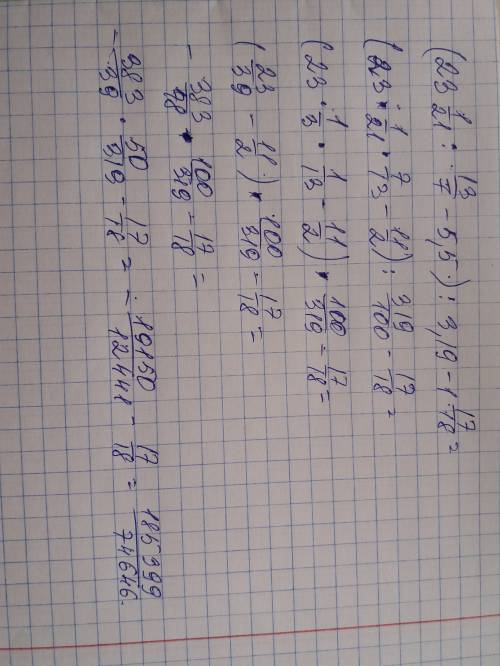 (23 1/21 : 13/7 - 5,5) : 3,19 - 1 · 17/18 =
(23 · 1/21 · 7/13 - 11/2) : 319/100 - 17/18 =
(23 · 1/3 · 1/13 - 11/2) · 100/319 - 17/18 =
(23/39 - 11/2) · 100/319 - 17/18 =
- 383/78 · 100/319 - 17/18 =
- 383/39 · 50/319 - 17/18 = - 19150/12441 - 17/18 = - 185399/74646.